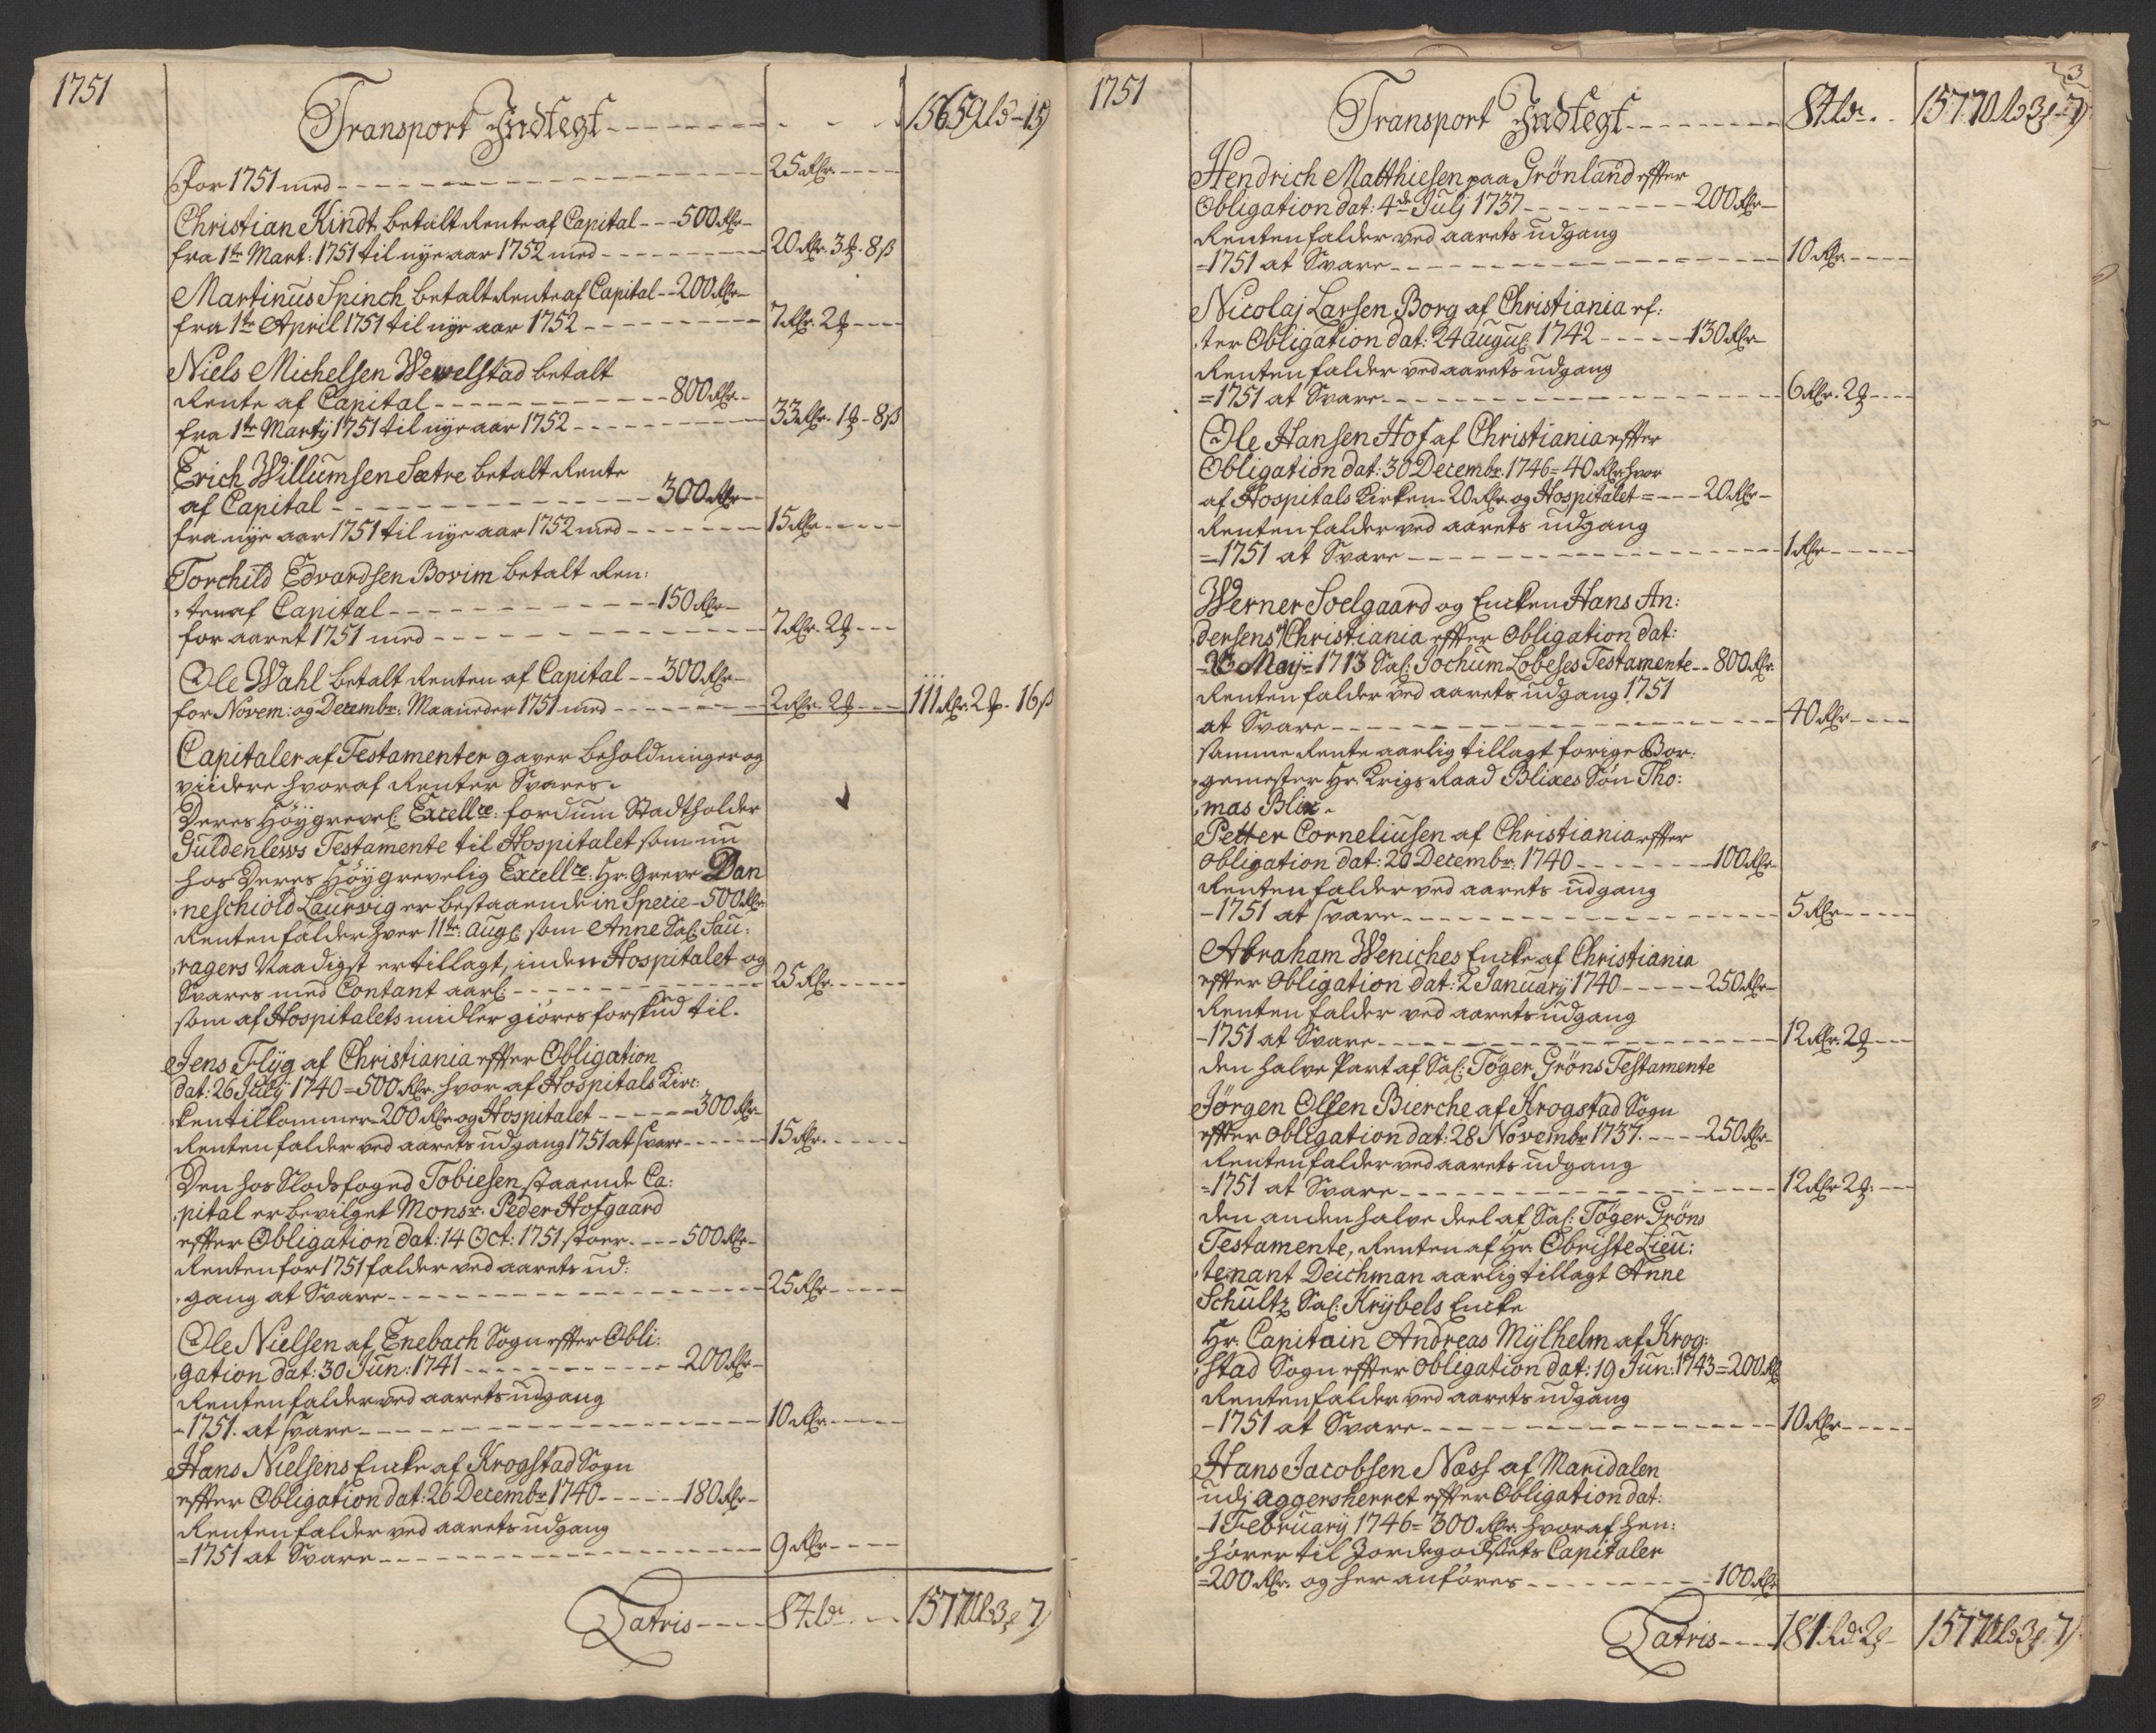 1751
Transport Indtegt - - - 1565 Rd - 15
for 1751 med - - - 25 Rdr. - - -
Christian Kindt betalt Rente af Capital - - 500 Rdr -
fra 1te Mart: 1751 til nye aar 1752 med - - - 20 Rdr. 3 ℔ - 8 ß
Martinus Spinch betalt Rente af Capital - - 200 Rdr -
fra 1te April 1751 til nye aar 1752 - - - 7 Rdr. 2 ℔ - - -
Niels Michelsen Wewelstad betalt
Rente af Capital - - - 800 Rdr -
fra 1te Martij 1751 til nye aar 1752 - - - 33 Rdr. 1 ℔ - 8 ß
Erich Willumsen Sætre betalt Rente
af Capital - - - 300 Rdr -
fra nye aar 1751 til nye aar 1752 med - - - 15 Rdr - - -
Torchild Edvardsen Bovim betalt Ren:
ten af Capital - - - 150 Rdr -
for aaret 1751 med - - - 7 Rdr. 2 ℔ - - -
Ole Wahl betalt Renten af Capital - - 300 Rdr -
for Novem: og Decembr: Maaneder 1751 med - - - 2 Rdr. 2 ℔ - - - 111 Rdr. 2 ℔ - 16 ß
Capitaler af Testamenter gaver beholdninger og
viidere hvoraf Renter Svares.
Deres Höygrevel: Excellce: fordum Stadtholder
Guldenlews Testamente til Hospitalet som nu
hos Deres Höygrevelig Excellce: Hr. Greve Dan
neschiold Laurwig er bestaaende in Specie - 500 Rdr
Renten falder hver 11te: Aug: som Anne Sal: Sau:
ragers Naadigst er tillagt, inden Hospitalet og
Svares med Contant aarl: - - - 25 Rdr. - - -
som af Hospitalets midler giöres forskud til.
Jens Flÿg af Christiania effter Obligation
dat: 26 Julij 1740 = 500 Rdr. hvor af Hospitals Kirc:
ken tilkommer 200 Rdr og Hospitalet - - - 300 Rdr
Renten falder ved aarets udgang 1751 at svare - - - 15 Rdr. - - -
Den hos Slodsfoged Tobiesen staaende Ca:
pital er bevilget Monsr. Peder Hofgaard
effter Obligation dat: 14 Oct: 1751 stoer. - - - 500 Rdr -
Renten for 1751 falder ved aarets ud:
gang at Svare - - - 25 Rdr - - -
Ole Nielsen af Enebach Sogn effter Obli:
gation dat: 30 Jun: 1741 - - - 200 Rdr -
Renten falder ved aarets udgang
- 1751. at svare - - - 10 Rdr - - -
Hans Nielsens Encke af Krogstad Sogn
effter Obligation dat: 26 Decembr 1740 - - - 180 Rdr -
Renten falder ved aarets udgang
= 1751 at Svare - - - 9 Rdr - - -
Latris - - - 84 Rdr - - 1577 Rd 3 ℔ 7
3
1751
Transport Indtegt - - - 84 Rdr. - 1577 Rd 3 ℔ 7
Hendrich Matthiesen paa Grönland effter
Obligation dat: 4de Julj 1737 - - - 200 Rdr -
Renten falder ved aarets udgang
= 1751 at Svare - - - 10 Rdr - - -
Nicolaj Larsen Borg af Christiania ef:
ter Obligation dat: 24 August 1742 - - - 130 Rdr -
Renten falder ved aarets udgang
= 1751 at Svare - - - 6 Rdr. 2 ℔ - - -
Ole Hansen Hof af Christiania effter
Obligation dat: 30 Decembr. 1746 = 40 Rdr hvor
af Hospitals Kirken 20 Rdr. og Hospitalet = - - - 20 Rdr -
Renten falder ved aarets udgang
= 1751 at Svare - - - 1 Rdr - - -
Werner Soelgaard og Encken Hans An:
dersens af Christiania effter Obligation dat:
- 23 Maij = 1713 Sal: Jochum Lobeses Testamente - - 800 Rdr
Renten falder ved aarets udgang 1751
at Svare - - - 40 Rdr - - -
samme Rente aarlig tillagt forige Bor:
gemester Hr. Krigs Raad Blixes Sön Tho:
mas Blix.
Petter Corneliusen af Christiania effter
Obligation dat: 20 Decembr. 1740 - - - 100 Rdr
Renten falder ved aarets udgang
- 1751 at svare - - - 5 Rdr - - -
Abraham Weniches Encke af Christiania
effter Obligation dat: 2 Januarij 1740 - - - 250 Rdr -
Renten falder ved aarets udgang
- 1751 at Svare - - - 12 Rdr. 2 ℔ - - -
den halve Part af Sal: Töger Gröns Testamente
Jörgen Olsen Bierche af Krogstad Sogn
effter Obligation dat: 28 Novembr 1737. - - - 250 Rdr -
Renten falder ved aarets udgang
= 1751 at Svare - - - 12 Rdr 2 ℔ - - -
den anden halve deel af Sal: Töger Gröns
Testamente, Renten af Hr. Obriste Lieu:
tenant Deichman aarlig tillagt Anne
Schultz Sal: Krÿbels Encke
Hr: Capitain Andreas Mÿlhelm af Krog:
stad Sogn effter Obligation dat: 19 Jun: 1743 = 200 Rdr
Renten falder ved aarets udgang
- 1751 at Svare - - - 10 Rdr - - -
Hans Jacobsen Næss af Maridalen
udj Aggersherret effter Obligation dat:
- 1 Februarij 1746 = 300 Rdr. hvoraf hen:
hörer til Jordegodsets Capitaler
= 200 Rdr. og her anföres - - - 100 Rdr
Latris - - - 181 Rdr 2 ℔ - 1577 Rd 3 ℔ 7